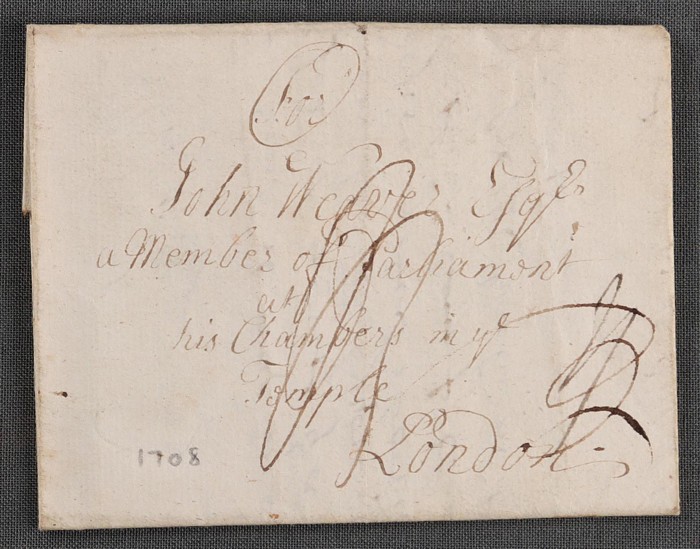 For
John Weaver Esqr
a Member of Parliament
at
his Chambers in ye
Temple
London.
3
1708